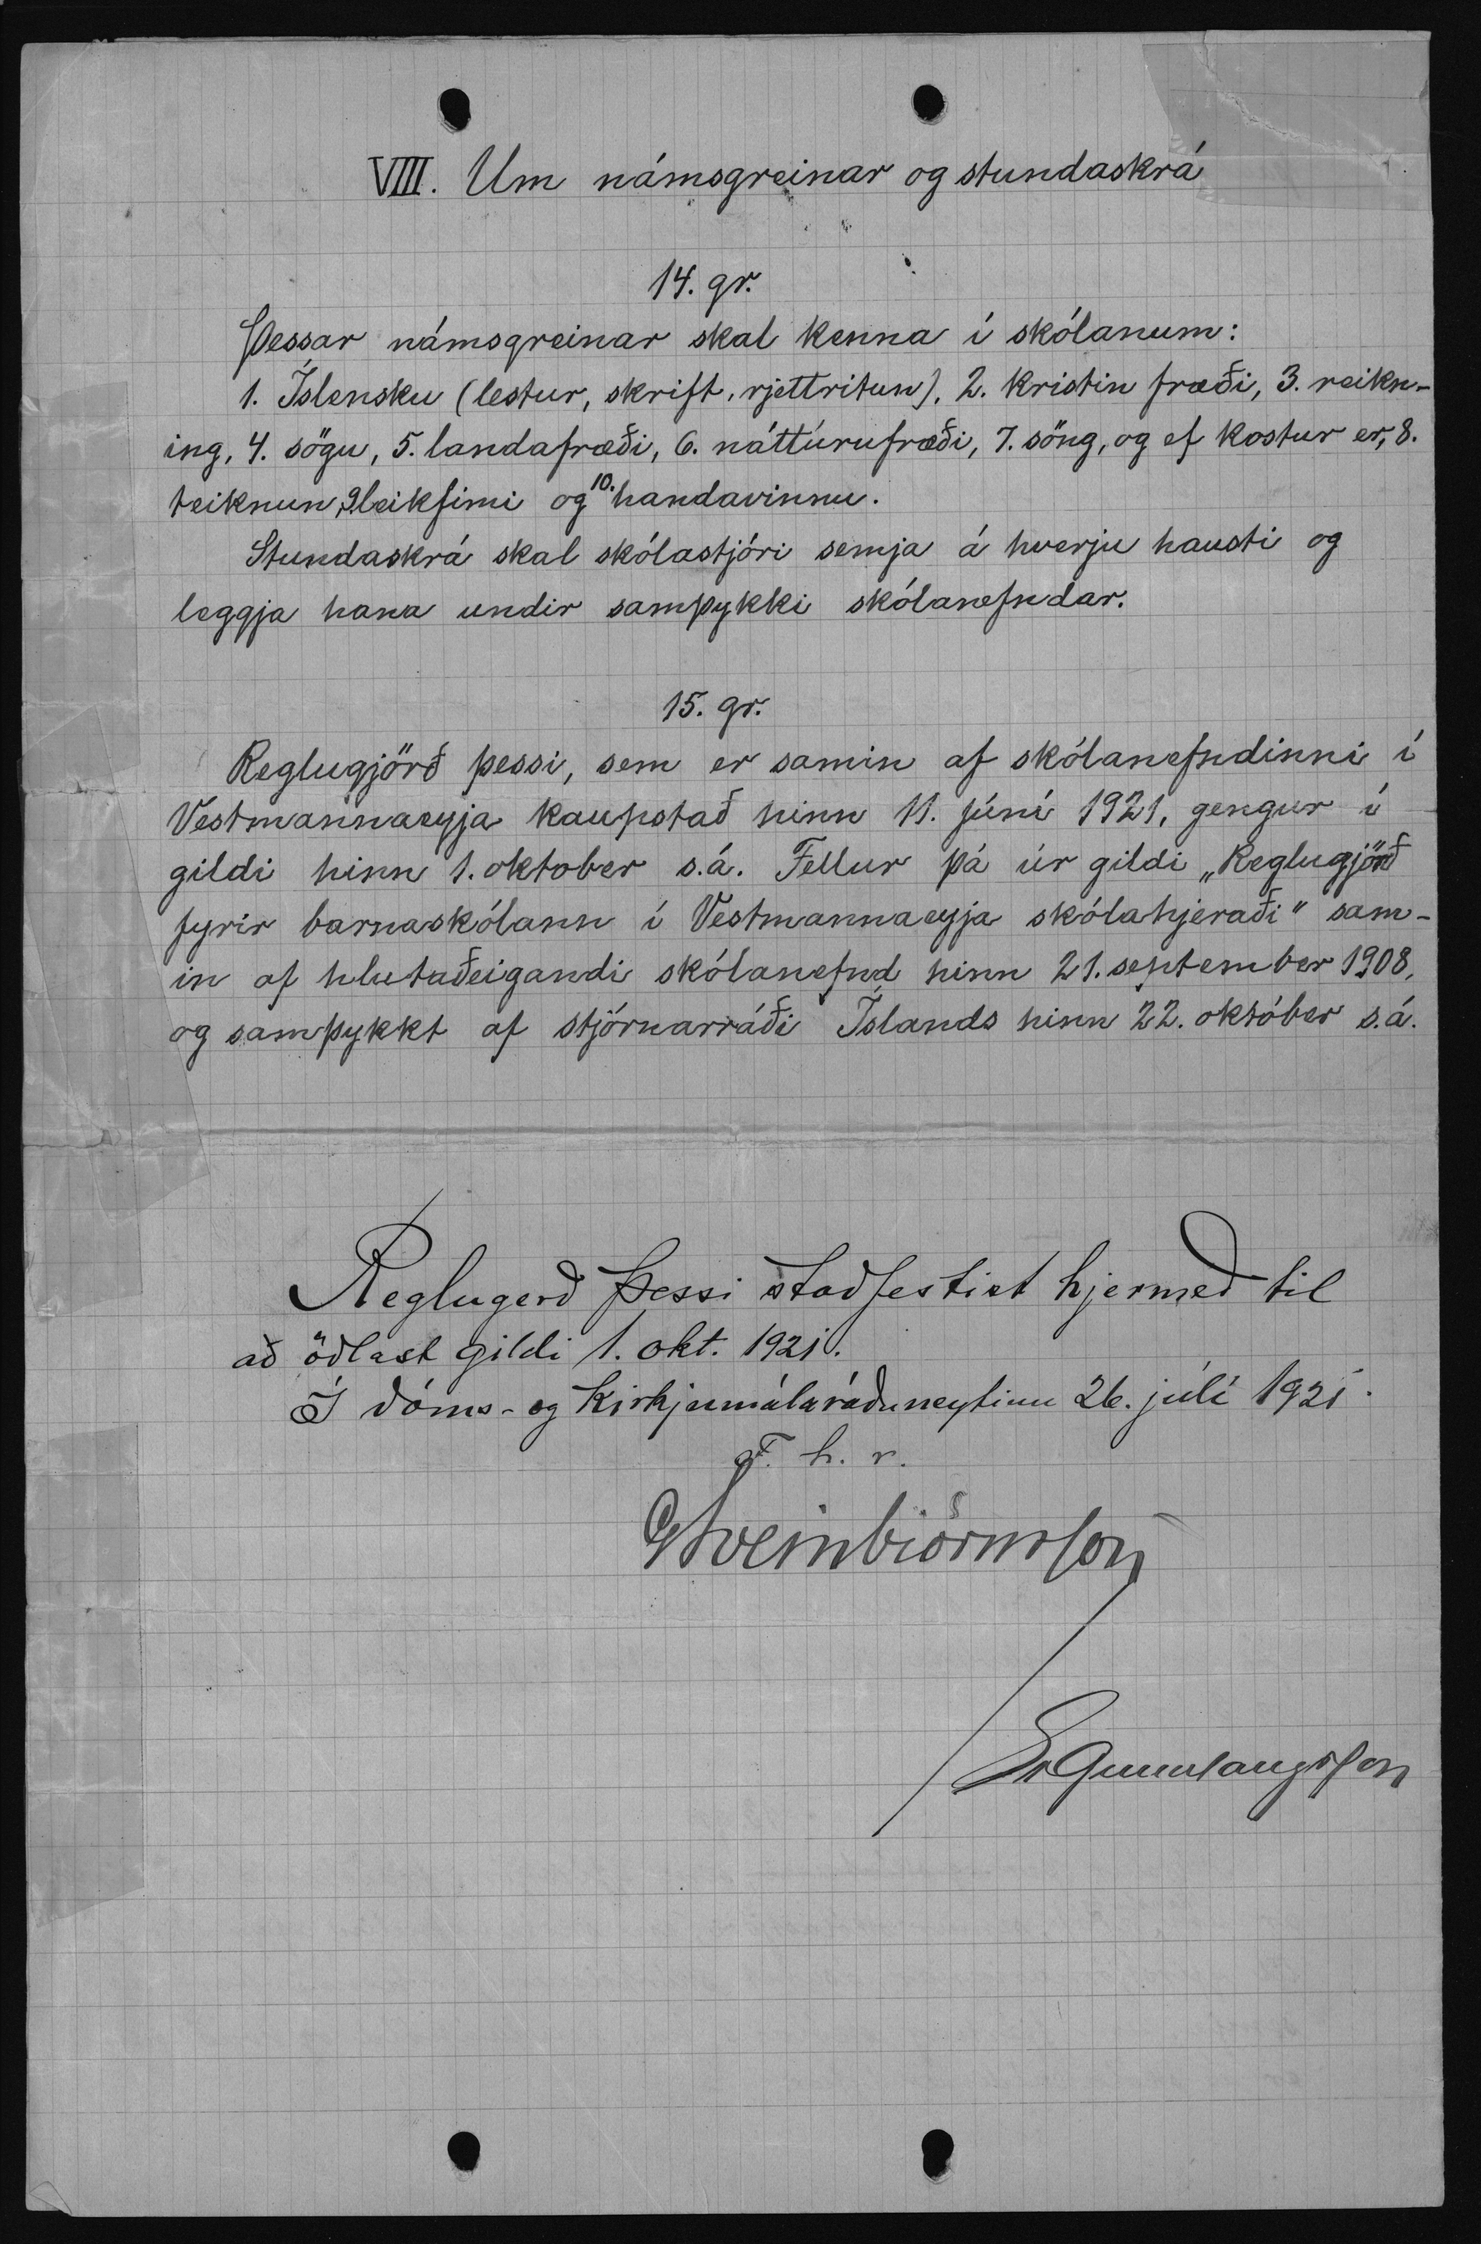 VIII. Um námsgreinar og stundaskrá
14. gr.
Þessar námsgreinar skal kenna í skólanum:
1. Íslensku (lestur, skrift, rjettritun), 2. kristin fræði, 3. reikn-
ing, 4. sögu, 5. landafræði, 6. náttúrufræði, 7. söng, og ef kostur er, 8.
teiknun, 9. leikfimi og 10. handavinnu.
Stundaskrá skal skólastjóri semja á hverju hausti og
leggja hana undir samþykki skólanefndar.
15. gr.
Reglugjörð þessi, sem er samin af skólanefndinni í
Vestmannaeyja kaupstað hinn 11. júní 1921, gengur í
gildi hinn 1. oktober s.á. Fellur þá úr gildi „Reglugjörð
fyrir barnaskólann í Vestmannaeyja skólahjeraði" sam-
in af hlutaðeigandi skólanefnd hinn 21. september 1908,
og samþykkt af stjórnarráði Íslands hinn 22. október s.á.
Reglugerð þessi staðfestist hjermeð til
að öðlast gildi 1. okt. 1921.
Í dóms- og kirkjumálaráðuneytinu 26. júlí 1921.
F. h. r.
GSveinbiörnsson
GGunnlaugsson